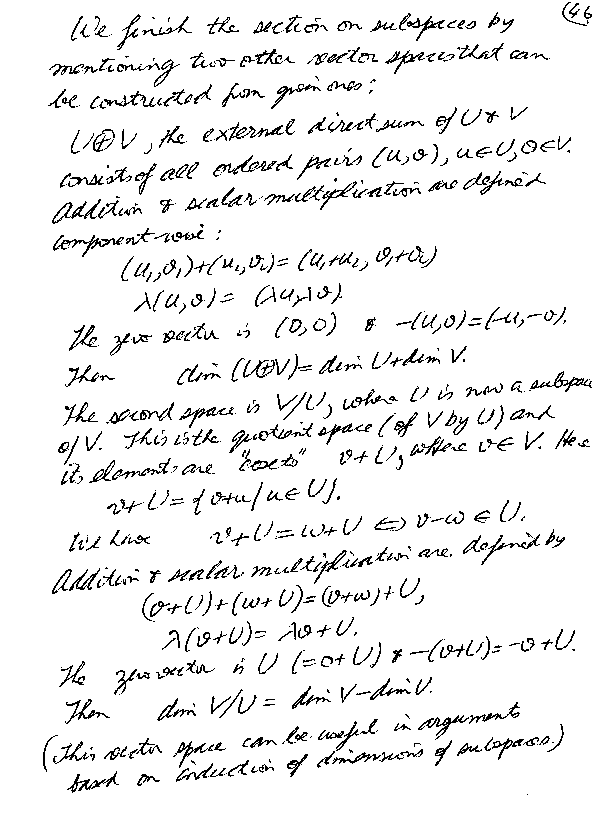 (46
We finish the section on subspaces by
mentioning two other vector spaces that can
be constructed from given ones:
U⊕V, the external direct sum of U & V
consists of all ordered pairs (u,v), u∈U, v∈V.
Addition & scalar multiplication are defined
component-wise:
(u₁,v₁)+(u₂,v₂)=(u₁+u₂, v₁+v₂)
λ(u,v)= (λu,λv).
The zero vector is (0,0) & -(u,v)=(-u,-v).
Then dim (U⊕V)= dim U+dim V.
The second space is V/U, where U is now a subspace
of V. This is the quotient space (of V by U) and
its elements are "cosets" v+U, where v∈V. Here
v+U={v+u/u∈U}.
We have v+U=w+U ⇔ v-w∈U.
Addition & scalar multiplication are defined by
(v+U)+(w+U)=(v+w)+U,
λ(v+U)= λv+U.
The zero vector is U (=0+U) & -(v+U)=-v+U.
Then dim V/U = dim V-dim U.
(This vector space can be useful in arguments
based on induction of dimensions of subspaces.)